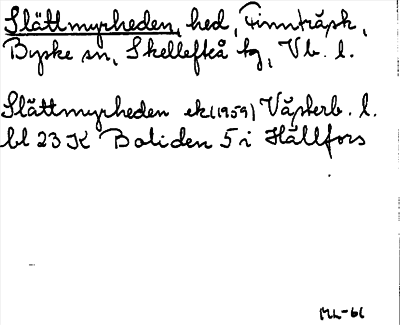 Slättmyrheden, hed, Finnträsk,
Byske sn, Skellefteå tg, Vb. l.
Slättmyrheden ek (1959) Västerb. l.
bl 23 K Boliden 5 i Hällfors
ML-61